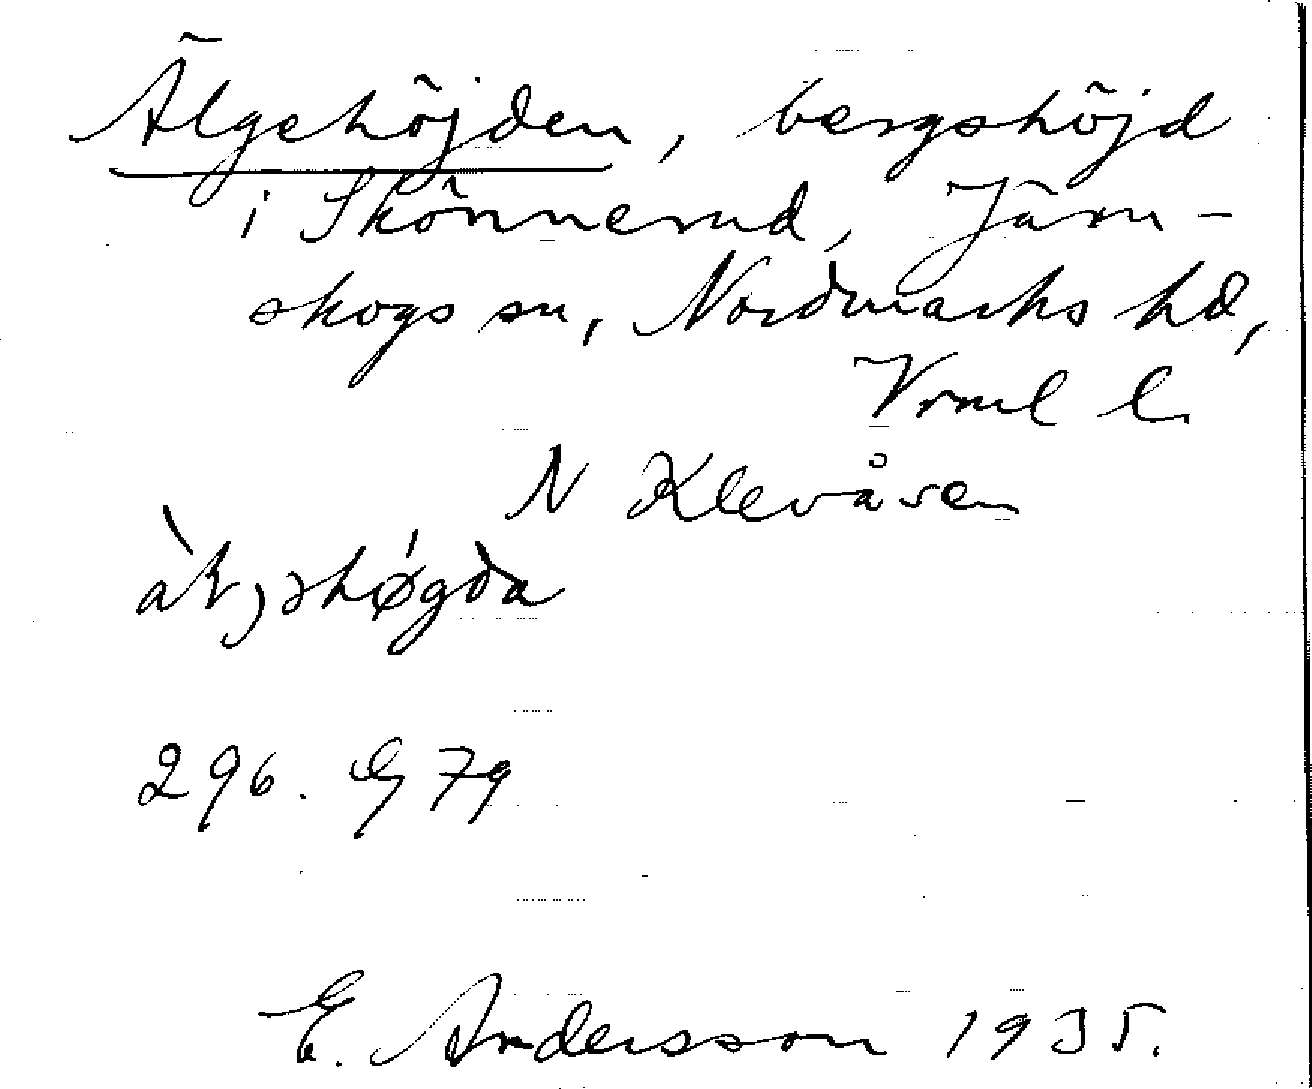 Älgehöjden, bergshöjd
i Skönnerud, Järn-
skogs sn, Nordmarks hd,
Vrml l.
N Klevåsen
296. G 79
E. Andersson 1935.